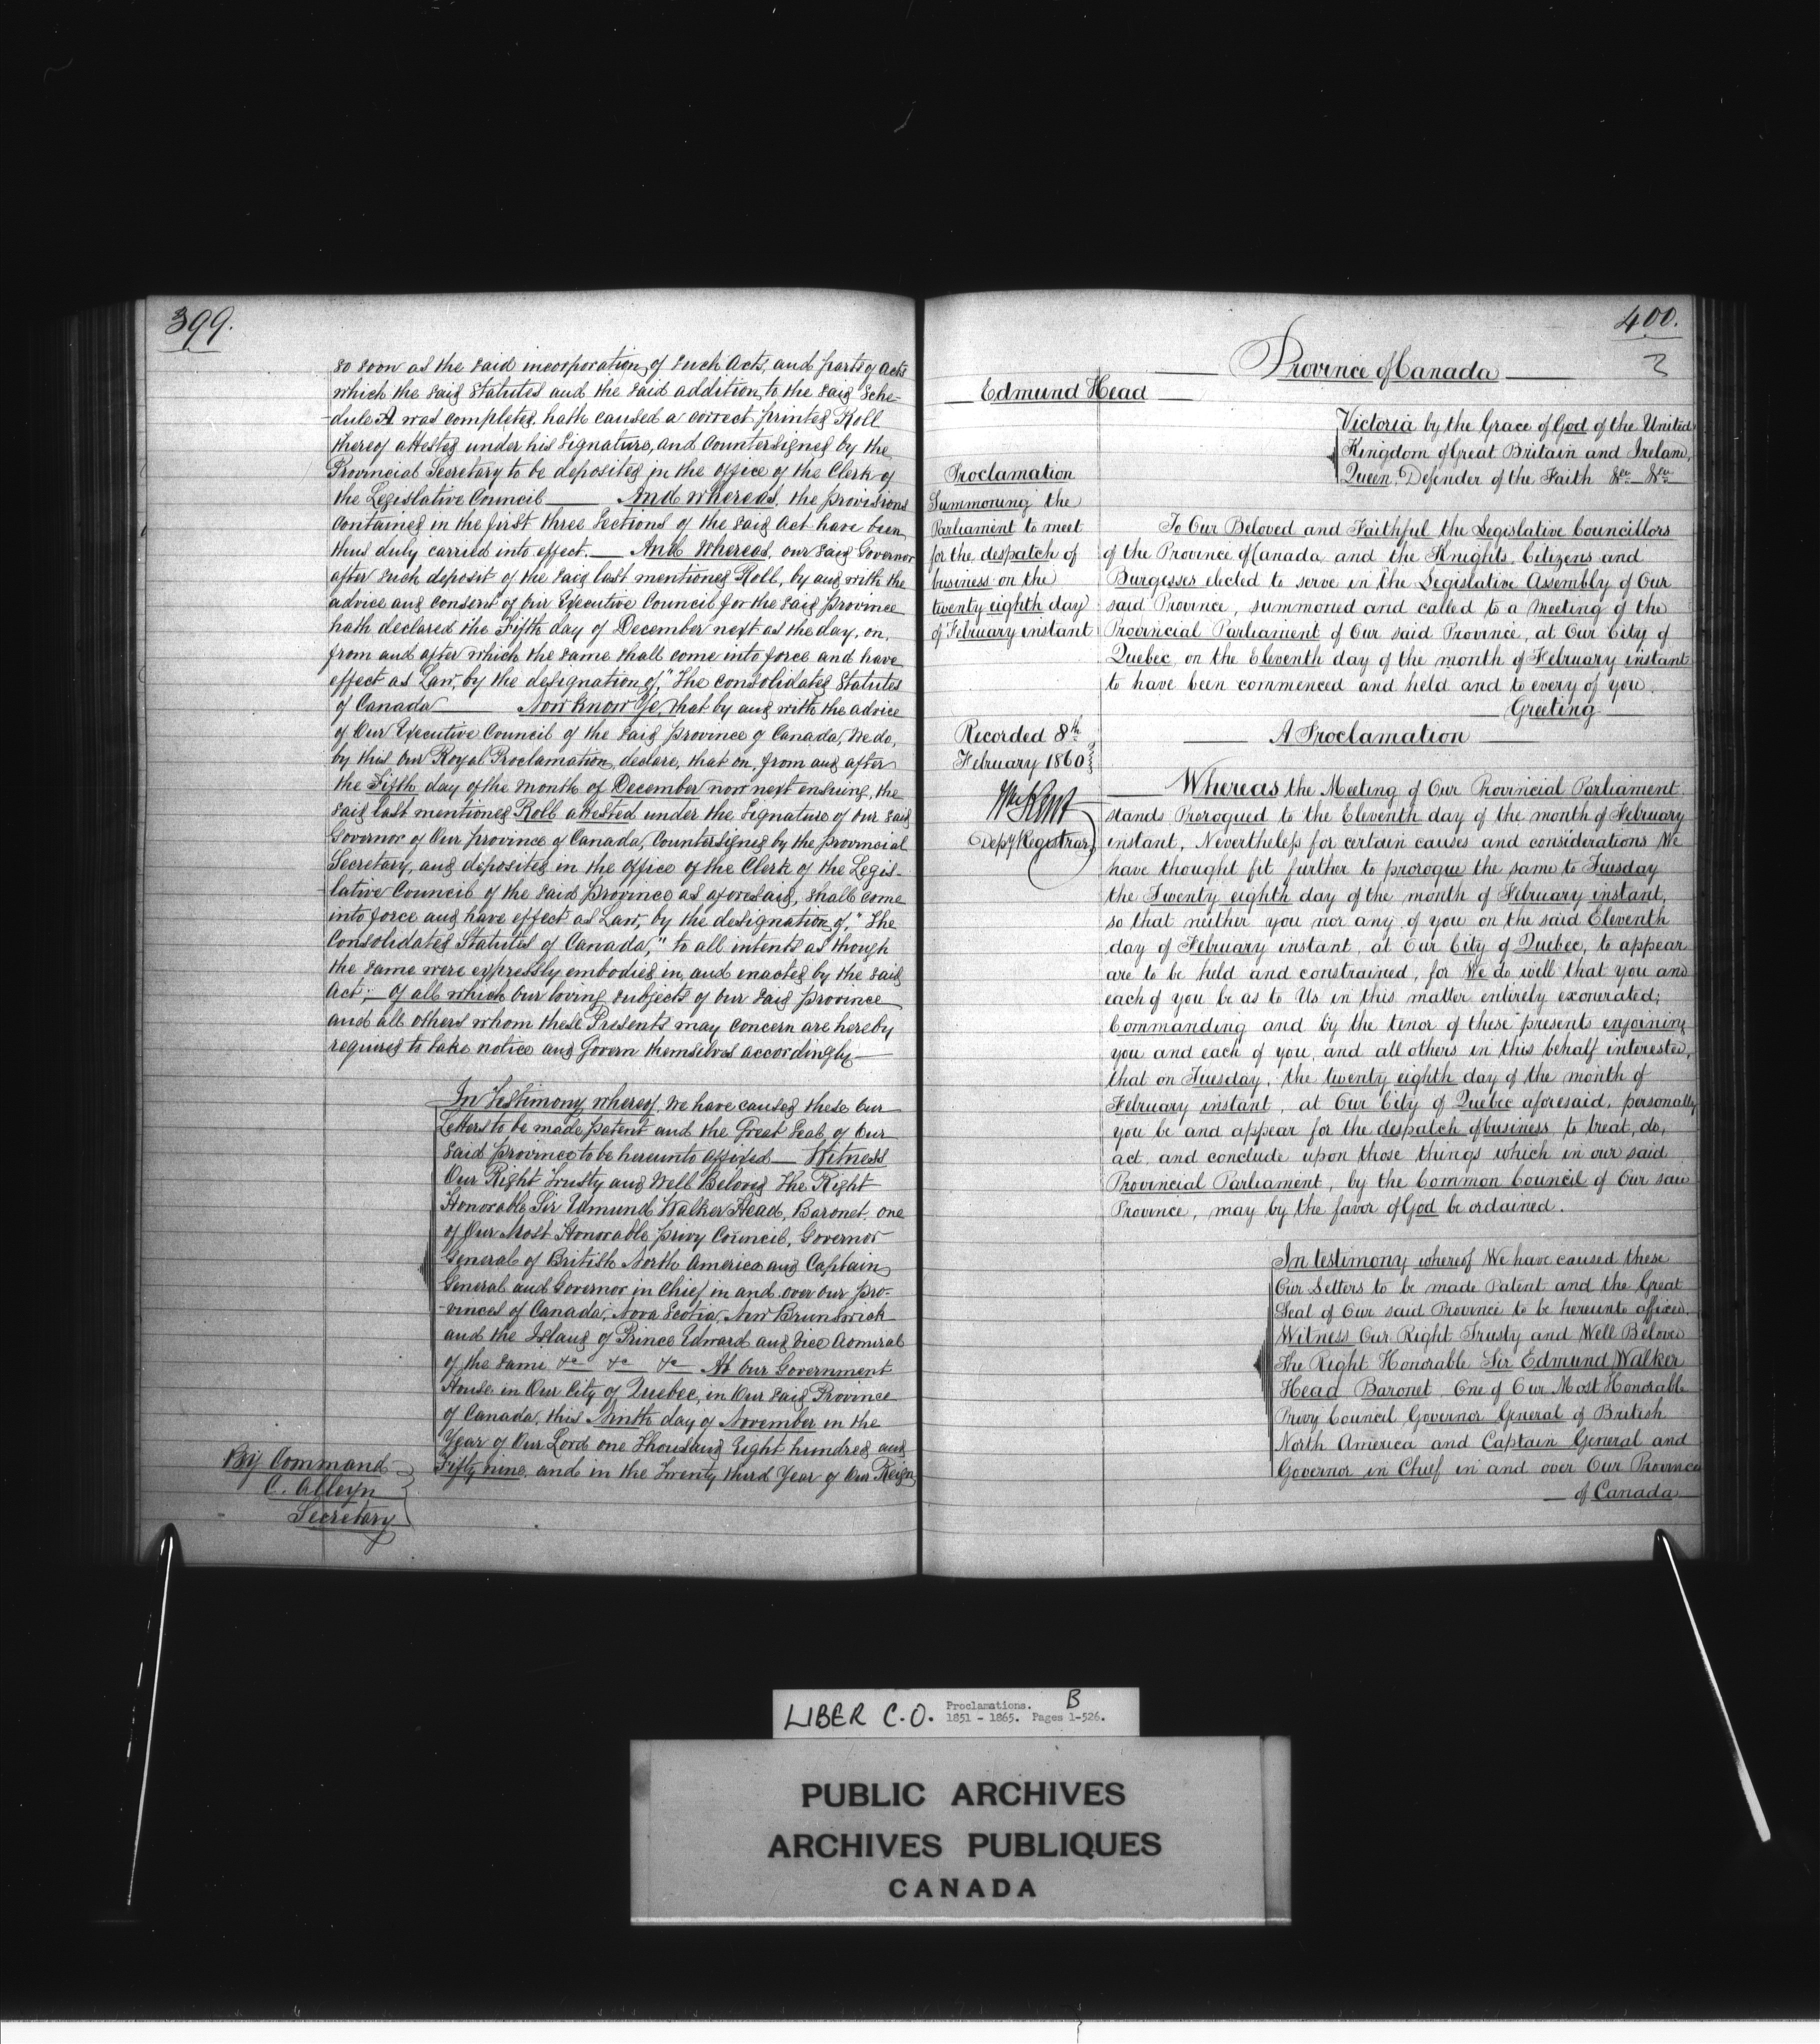 399.
so soon as the said incorporation of such Acts, and parts of Acts
which the said Statutes and the said addition, to the said Sche-
-dule A was completed, hath caused a correct printed Roll
thereof attested under his Signature, and Countersigned by the
Provincial Secretary to be deposited in the office of the Clerk of
the Legislative Council — And whereas, the provisions
contained in the first three Sections of the said Act have been
thus duly carried into effect. — And Whereas, our said Governor
after such deposit of the said last mentioned Roll, by and with the
advice and consent of Our Executive Council for the said province
hath declared the Fifth day of December next as the day, on,
from and after which the same shall come into force and have
effect as Law, by the designation of, "The consolidated Statutes
of Canada — Now Know Ye, that by and with the advice
of Our Executive Council of the said province of Canada, We do,
by this Our Royal Proclamation, declare, that on, from and after
the Fifth day of the month of December now next ensuing, the
said last mentioned Roll attested under the Signature of our said
Governor of Our province of Canada, Countersigned by the provincial
Secretary, and deposited in the Office of the Clerk of the Legis-
-lative Council of the said Province as aforesaid, shall come
into force and have effect as Law, by the designation of, "The
Consolidated Statutes of Canada," to all intents as though
the same were expressly embodied in, and enacted by the said
Act; — Of all which Our loving subjects of our said province
and all others whom these Presents may concern are hereby
required to take notice and Govern themselves accordingly —
In Testimony whereof, We have caused these Our
Letters to be made patent and the Great Seal of Our
said province to be hereunto affixed — Witness
Our Right Trusty and Well Beloved The Right
Honorable Sir Edmund Walker Head, Baronet, one
of Our Most Honorable privy Council, Governor
General of British North America and Captain
General and Governor in Chief in and over our pro-
-vinces of Canada, Nova Scotia, New Brunswick
and the Island of Prince Edward and Vice Admiral
of the same &c &c &c At Our Government
House in Our City of Quebec, in Our said Province
of Canada, this Ninth day of November in the
Year of Our Lord one Thousand Eight hundred and
Fifty nine, and in the Twenty third Year of Our Reign
By Command
C. Alleyn
Secretary
400.
Province of Canada
Edmund Head
Victoria by the Grace of God of the United
Kingdom of Great Britain and Ireland,
Queen, Defender of the Faith &ca &ca
Proclamation
Summoning the
Parliament to meet
for the despatch of
business on the
twenty eighth day
of February instant
To Our Beloved and Faithful the Legislative Councillors
of the Province of Canada and the Knights, Citizens and
Burgesses elected to serve in the Legislative Assembly of Our
said Province, summoned and called to a Meeting of the
Provincial Parliament of Our said Province, at Our City of
Quebec, on the Eleventh day of the month of February instant
to have been commenced and held and to every of you.
Greeting
Recorded 8th
February 1860
Wm Kent
Depy Registrar
A Proclamation
Whereas the Meeting of Our Provincial Parliament
stands Prorogued to the Eleventh day of the month of February
instant, Nevertheless for certain causes and considerations We
have thought fit further to prorogue the same to Tuesday
the Twenty eighth day of the month of February instant,
so that neither you nor any of you on the said Eleventh
day of February instant, at Our City of Quebec, to appear
are to be held and constrained, for We do will that you and
each of you be as to Us in this matter entirely exonerated;
Commanding and by the tenor of these presents enjoining
you and each of you, and all others in this behalf interested,
that on Tuesday, the twenty eighth day of the month of
February instant, at Our City of Quebec aforesaid, personally
you be and appear for the despatch of business, to treat, do,
act, and conclude upon those things which in our said
Provincial Parliament, by the Common Council of Our said
Province, may by the favor of God be ordained.
In testimony whereof We have caused these
Our Letters to be made Patent and the Great
Seal of Our said Province to be hereunto affixed.
Witness Our Right Trusty and Well Beloved
The Right Honorable Sir Edmund Walker
Head Baronet, One of Our Most Honorable
Privy Council Governor General of British
North America and Captain General and
Governor in Chief in and over Our Provinces
of Canada
LIBER C.O. Proclamations. B
1851 - 1865. Pages 1-526.
PUBLIC ARCHIVES
ARCHIVES PUBLIQUES
CANADA